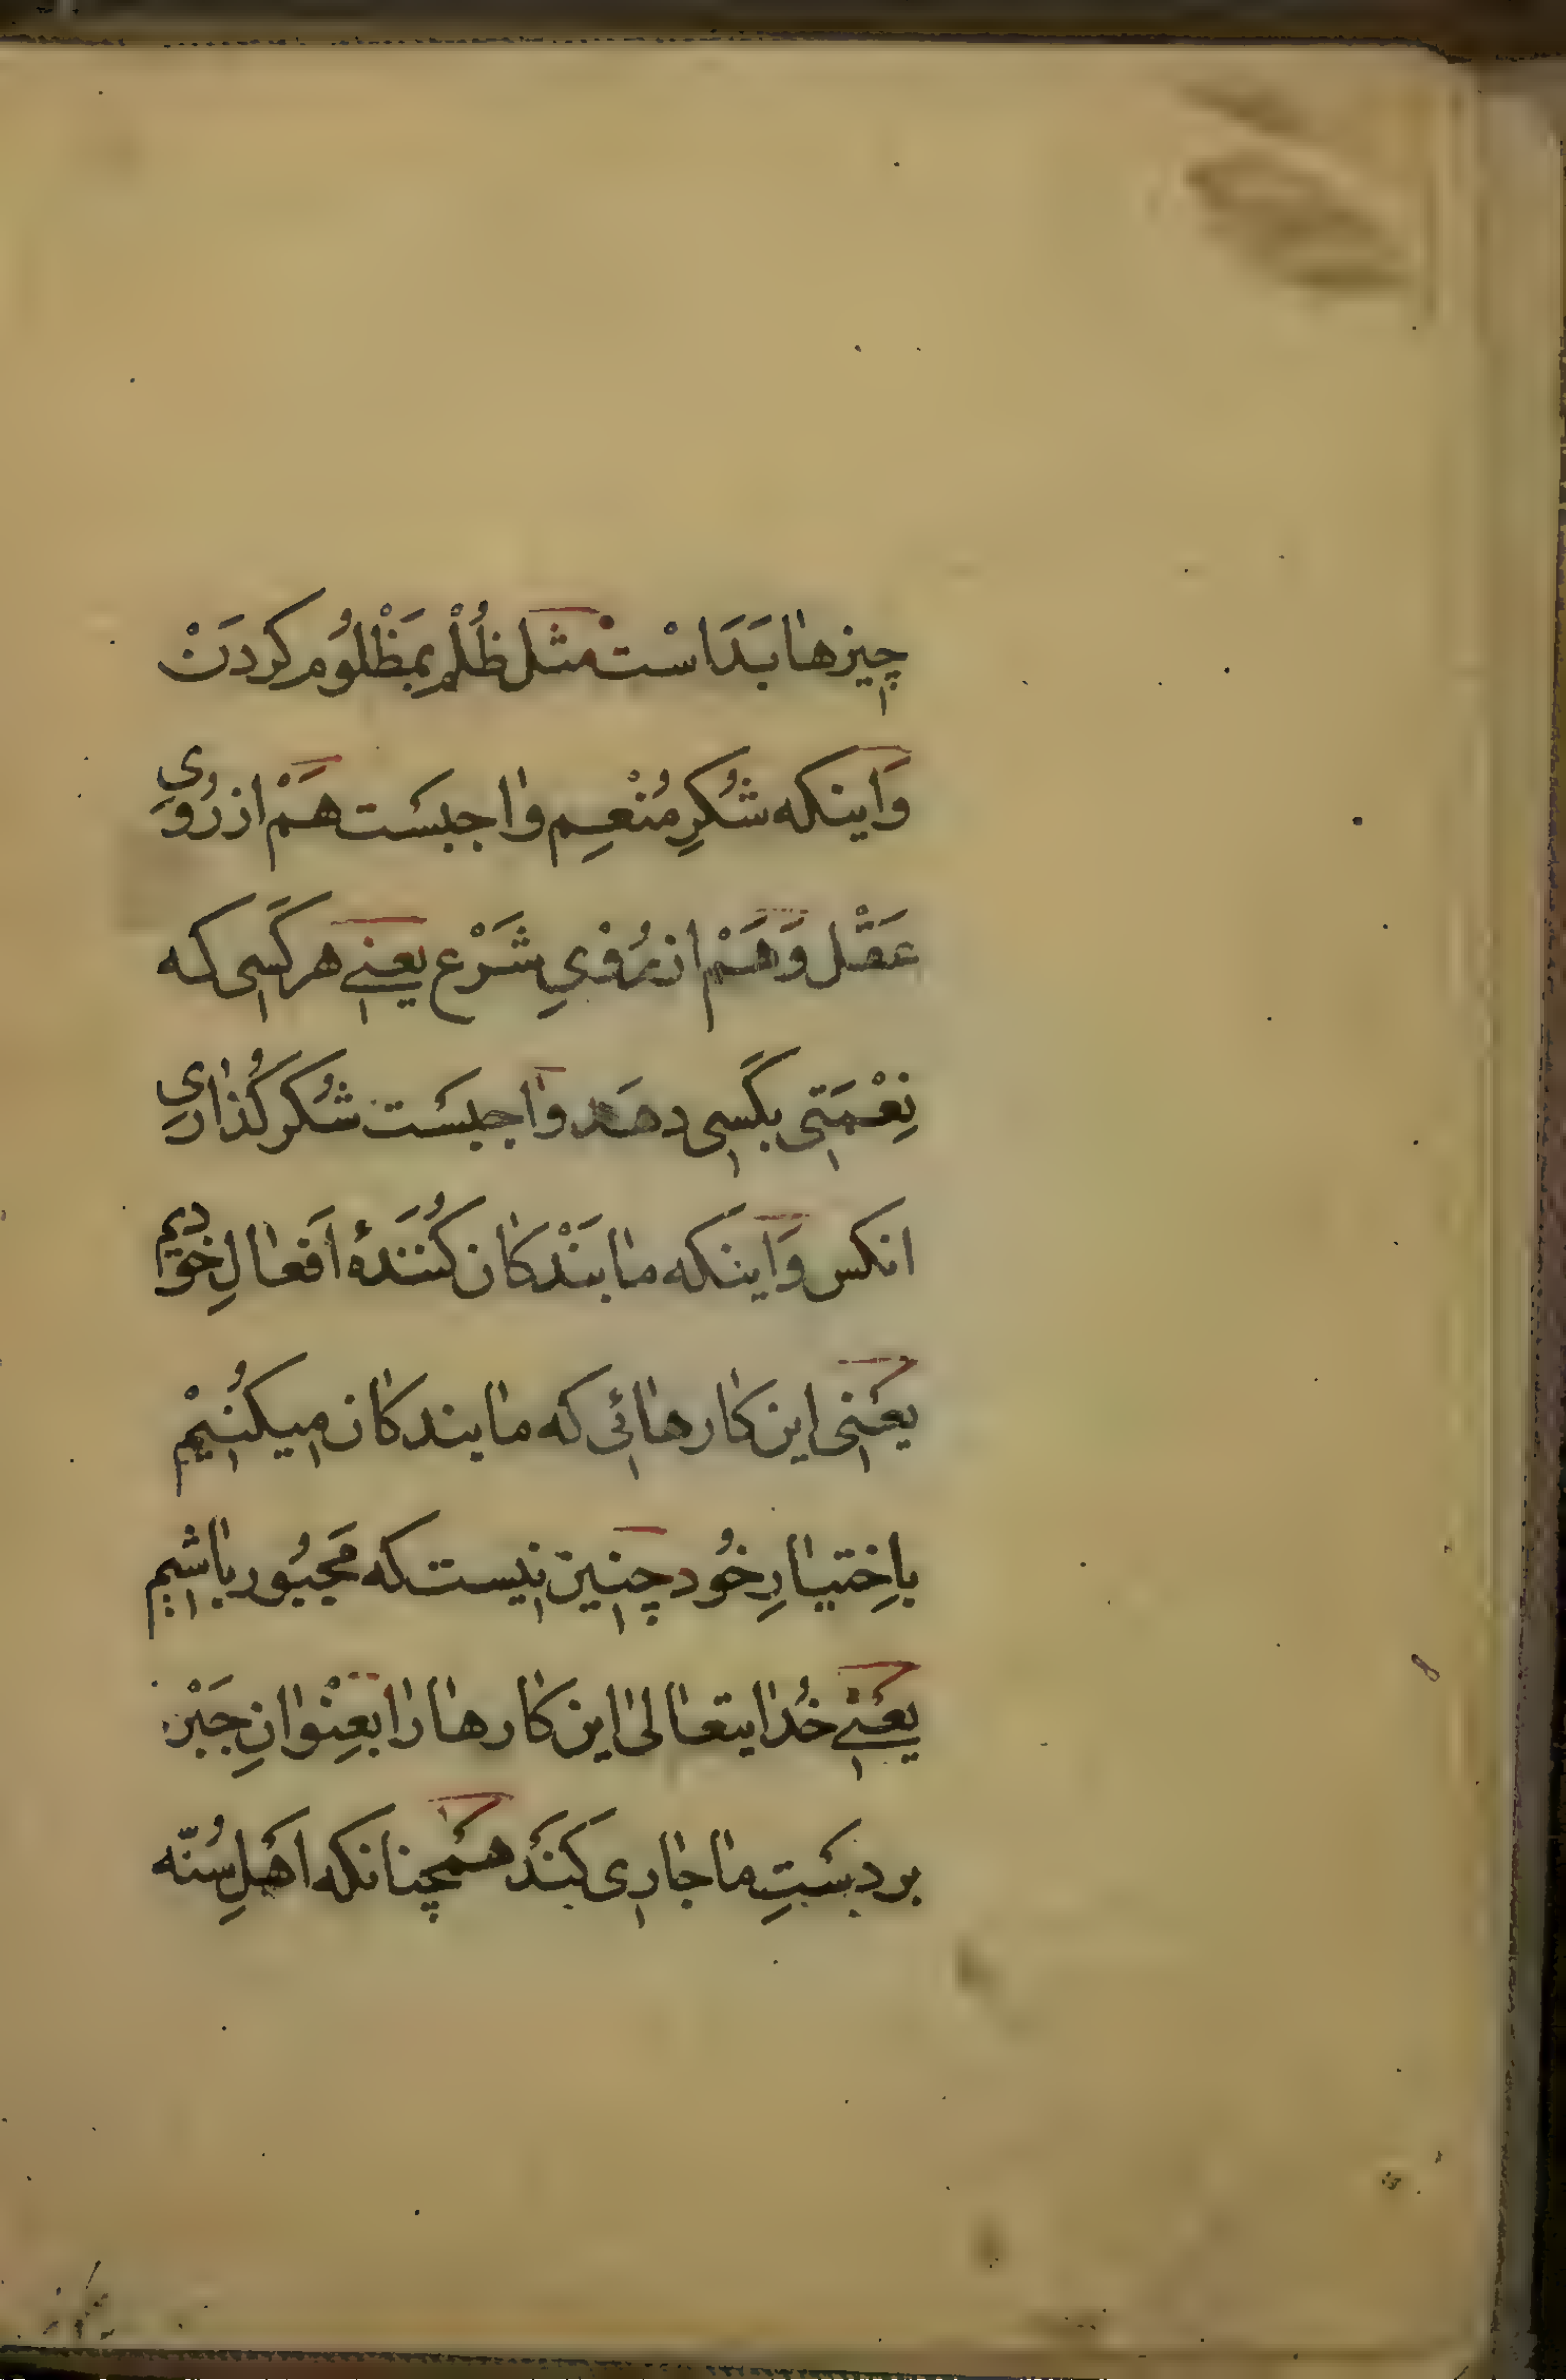 چیزها بَدَاسْتْ مثل ظُلْمْ بَمَظْلُوُم کردَنْ
وَاینکه شُکرِ مُنْعِم واجبسَت هَمْ از رُویِ
عَقْل وَهَمْ از رُویِ شَرْع یعنے هر کَسِی که
نِعْمَتِی بکَسِی دهَد واجبسَت شُکر کُذاری
انکس وَاینکه ما بَنْدکان کُنَنَدۀ اَفعالِ خودیم
یعنی این کارهائی که ما بندکان میکُنِیمْ
باِختیارِ خُود چنِین نیست که مَجبُور باشیم
یعنے خُدایتعالی این کارها را بعِنْوانِ جَبْر
بر دستِ ما جاری کنَد همچنانکه اهلِ سُنّه